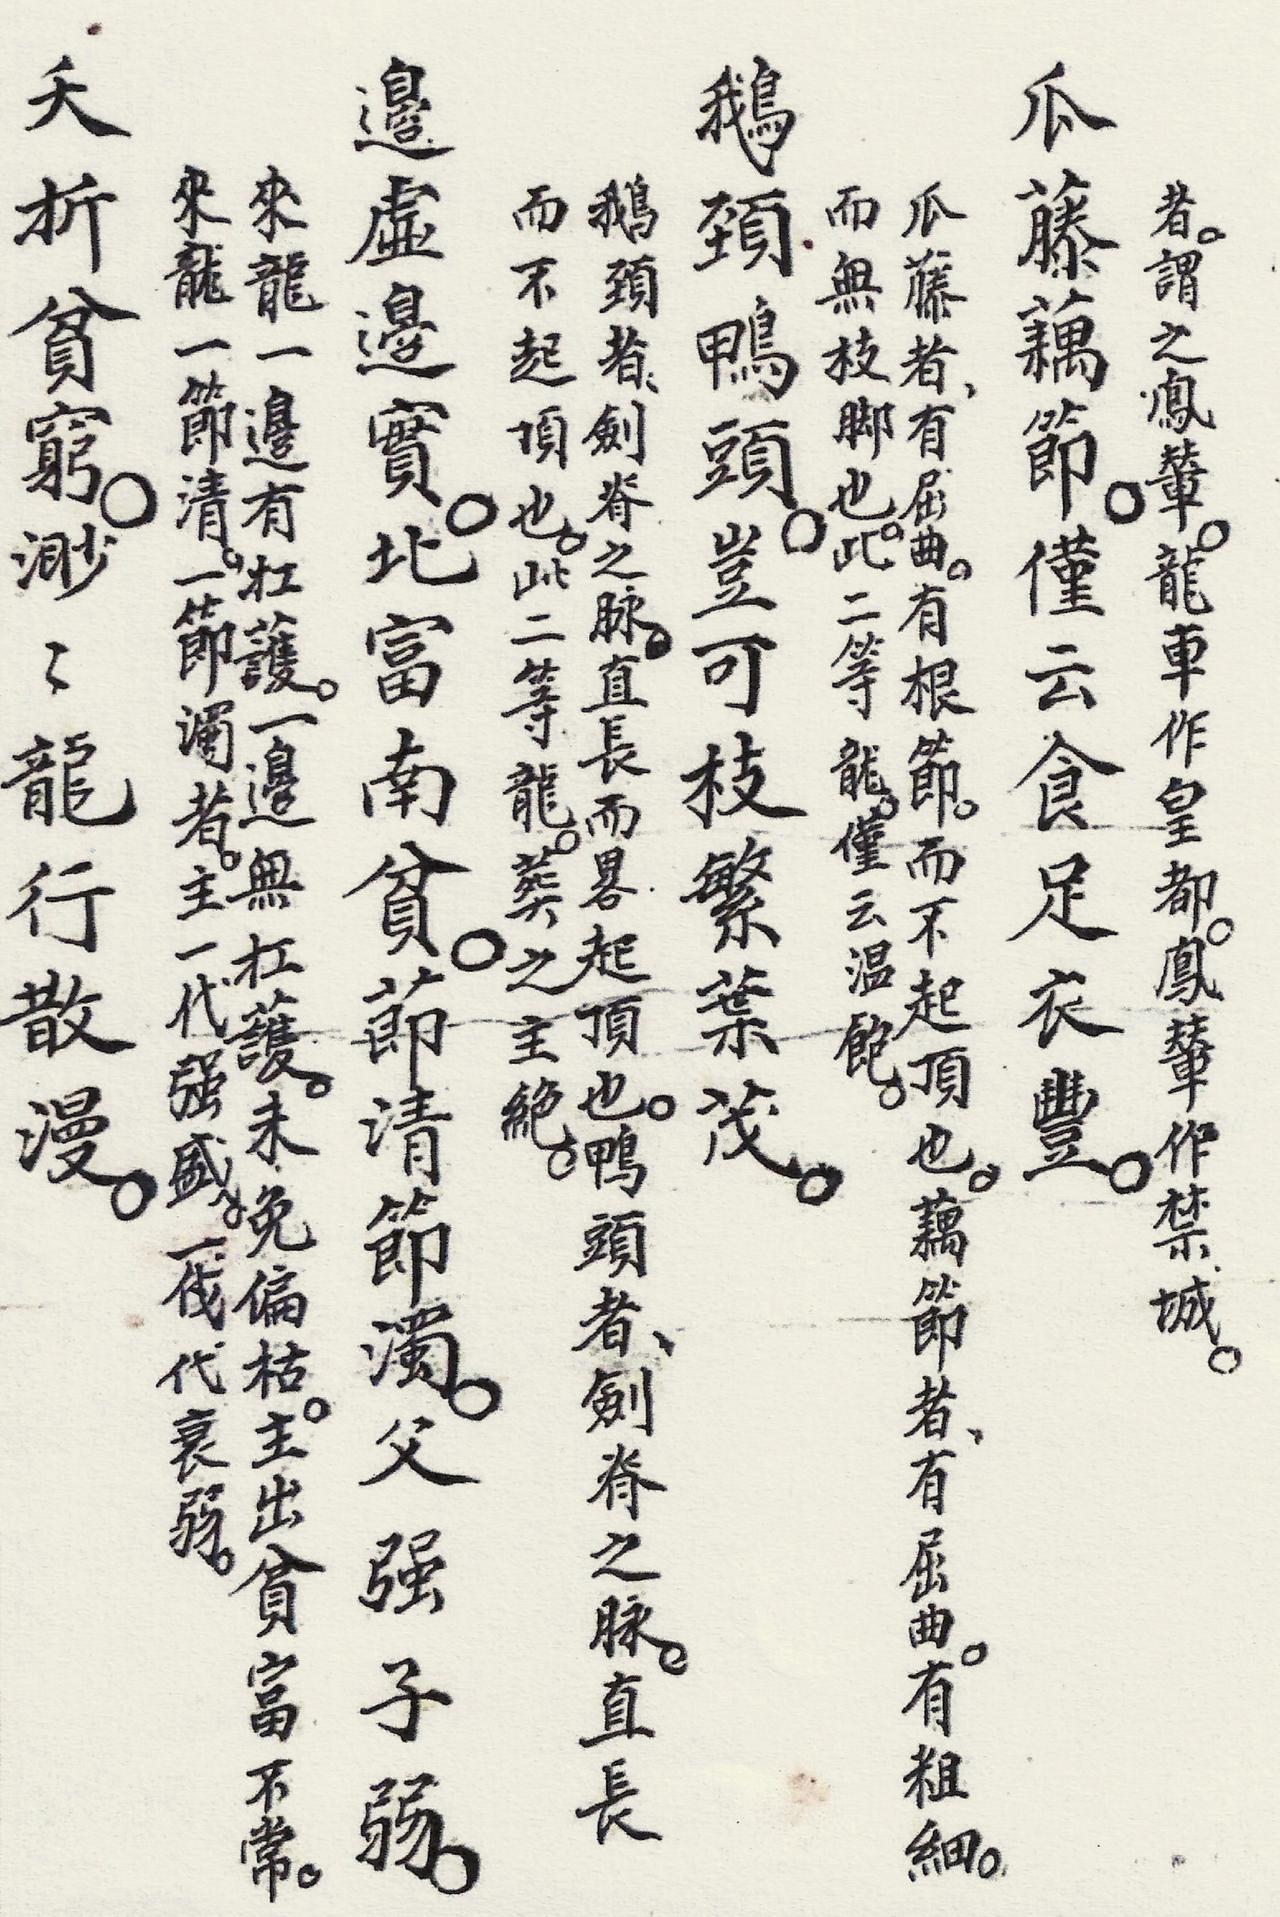 者。謂之鳳輦。龍車作皇都。鳳輦作禁城。
瓜藤藕節。僅云食足衣豐。
瓜藤者、有屈曲。有根節。而不起頂也。藕節者、有屈曲。有粗細。
而無枝脚也。此二等龍。僅云温飽。
鵝頸鴨頭。豈可枝繁葉茂。
鵝頸者、劍脊之脉。直長而畧起頂也。鴨頭者、劍脊之脉。直長
而不起頂也。此二等龍。葬之主絶。
邊虛邊實。北富南貧。節清節濁。父强子弱。
來龍一邊有扛護。一邊無扛護。未免偏枯。主出貧富不常。
來龍一節清。一節濁者。主一代强盛。一伐代衰弱。
夭折貧窮。渺〻龍行散漫。